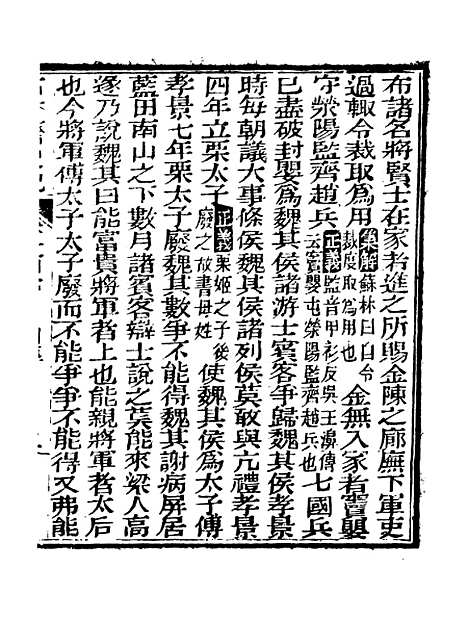 布諸名將賢士在家者進之所賜金陳之廊廡下軍吏
過輒令裁取為用集解蘇林曰自令裁度取為用也金無入家者竇嬰
守滎陽監齊趙兵正義監音甲衫反吳王濞傳云竇嬰屯滎陽監齊趙兵也七國兵
已盡破封嬰為魏其侯諸游士賓客爭歸魏其侯孝景
時每朝議大事條侯魏其侯諸列侯莫敢與亢禮孝景
四年立栗太子正義栗姬之子後廢之故書母姓使魏其侯為太子傅
孝景七年栗太子廢魏其數爭不能得魏其謝病屏居
藍田南山之下數月諸賓客辯士說之莫能來梁人高
遂乃說魏其曰能富貴將軍者上也能親將軍者太后
也今將軍傅太子太子廢而不能爭爭不能得又弗能